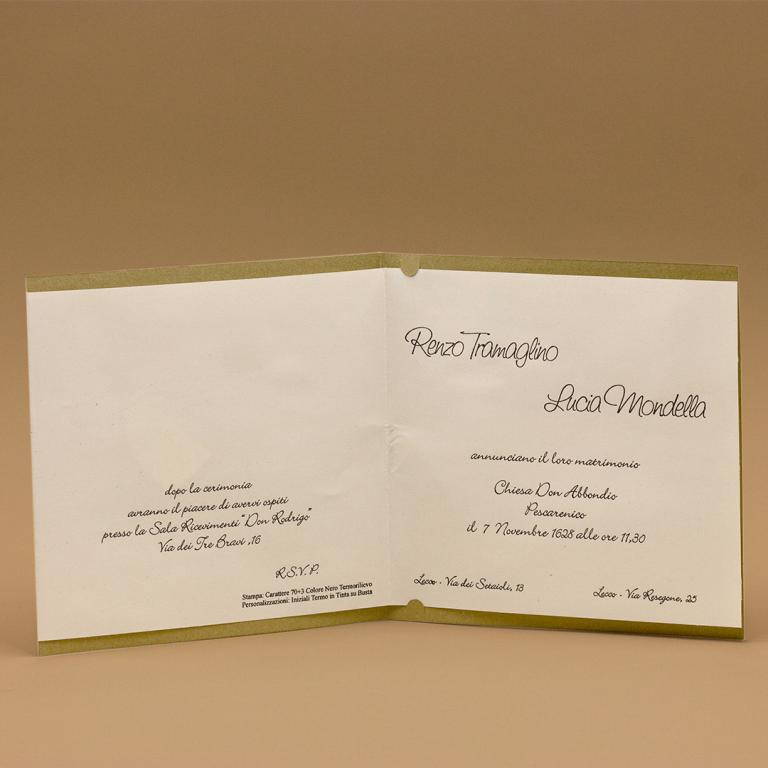 dopo la cerimonia
avranno il piacere di avervi ospiti
presso la Sala Ricevimenti "Don Rodrigo"
Via dei Tre Bravi ,16
R.S.V.P.
Stampa: Carattere 70+3 Colore Nero Termorilievo
Personalizzazioni: Iniziali Termo in Tinta su Busta
Renzo Tramaglino
Lucia Mondella
annunciano il loro matrimonio
Chiesa Don Abbondio
Pescarenico
il 7 Novembre 1628 alle ore 11,30
Lecco - Via dei Setaioli, 13
Lecco - Via Resegone, 25